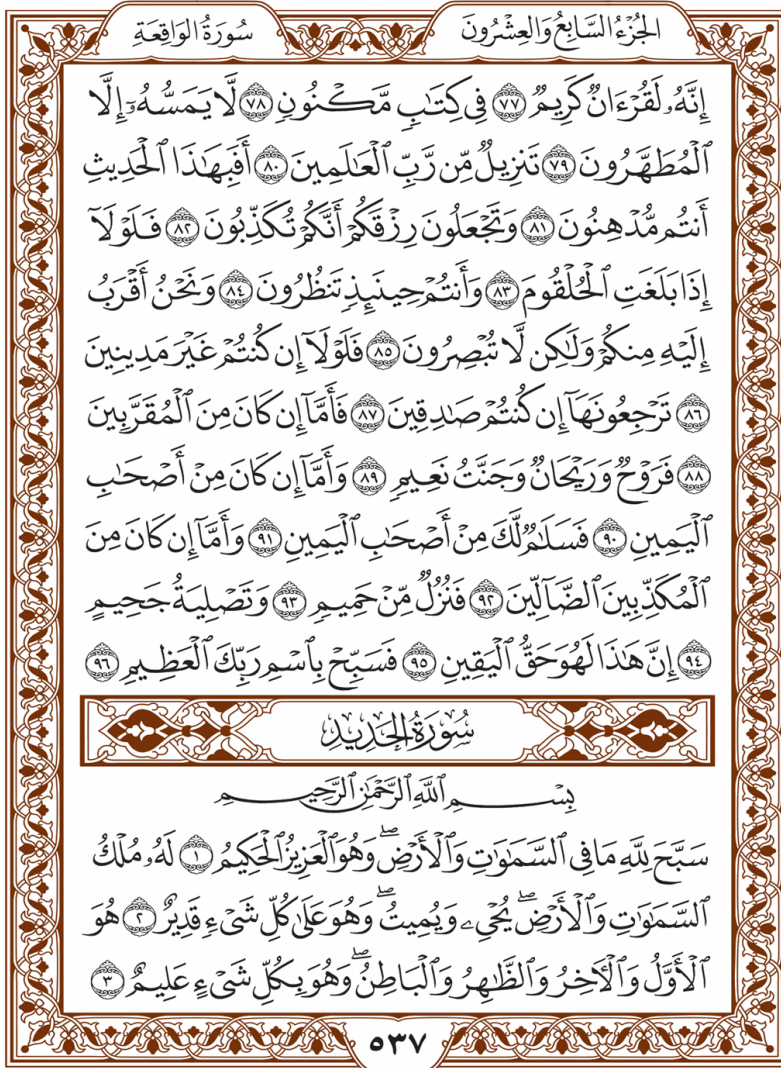 الجُزْءُ السَّابِعُ وَالعِشْرُونَ
سُورَةُ الوَاقِعَةِ
إِنَّهُۥ لَقُرْءَانٌ كَرِيمٌ ٧٧ فِي كِتَٰبٍ مَّكْنُونٍ ٧٨ لَّا يَمَسُّهُۥٓ إِلَّا
ٱلْمُطَهَّرُونَ ٧٩ تَنزِيلٌ مِّن رَّبِّ ٱلْعَٰلَمِينَ ٨٠ أَفَبِهَٰذَا ٱلْحَدِيثِ
أَنتُم مُّدْهِنُونَ ٨١ وَتَجْعَلُونَ رِزْقَكُمْ أَنَّكُمْ تُكَذِّبُونَ ٨٢ فَلَوْلَآ
إِذَا بَلَغَتِ ٱلْحُلْقُومَ ٨٣ وَأَنتُمْ حِينَئِذٍ تَنظُرُونَ ٨٤ وَنَحْنُ أَقْرَبُ
إِلَيْهِ مِنكُمْ وَلَٰكِن لَّا تُبْصِرُونَ ٨٥ فَلَوْلَآ إِن كُنتُمْ غَيْرَ مَدِينِينَ
٨٦ تَرْجِعُونَهَآ إِن كُنتُمْ صَٰدِقِينَ ٨٧ فَأَمَّآ إِن كَانَ مِنَ ٱلْمُقَرَّبِينَ
٨٨ فَرَوْحٌ وَرَيْحَانٌ وَجَنَّتُ نَعِيمٍ ٨٩ وَأَمَّآ إِن كَانَ مِنْ أَصْحَٰبِ
ٱلْيَمِينِ ٩٠ فَسَلَٰمٌ لَّكَ مِنْ أَصْحَٰبِ ٱلْيَمِينِ ٩١ وَأَمَّآ إِن كَانَ مِنَ
ٱلْمُكَذِّبِينَ ٱلضَّآلِّينَ ٩٢ فَنُزُلٌ مِّنْ حَمِيمٍ ٩٣ وَتَصْلِيَةُ جَحِيمٍ
٩٤ إِنَّ هَٰذَا لَهُوَ حَقُّ ٱلْيَقِينِ ٩٥ فَسَبِّحْ بِٱسْمِ رَبِّكَ ٱلْعَظِيمِ ٩٦
سُورَةُ الحَدِيدِ
بِسْمِ ٱللَّهِ ٱلرَّحْمَٰنِ ٱلرَّحِيمِ
سَبَّحَ لِلَّهِ مَا فِي ٱلسَّمَٰوَٰتِ وَٱلْأَرْضِۖ وَهُوَ ٱلْعَزِيزُ ٱلْحَكِيمُ ١ لَهُۥ مُلْكُ
ٱلسَّمَٰوَٰتِ وَٱلْأَرْضِۖ يُحْيِۦ وَيُمِيتُۖ وَهُوَ عَلَىٰ كُلِّ شَيْءٍ قَدِيرٌ ٢ هُوَ
ٱلْأَوَّلُ وَٱلْءَاخِرُ وَٱلظَّٰهِرُ وَٱلْبَاطِنُۖ وَهُوَ بِكُلِّ شَيْءٍ عَلِيمٌ ٣
٥٣٧